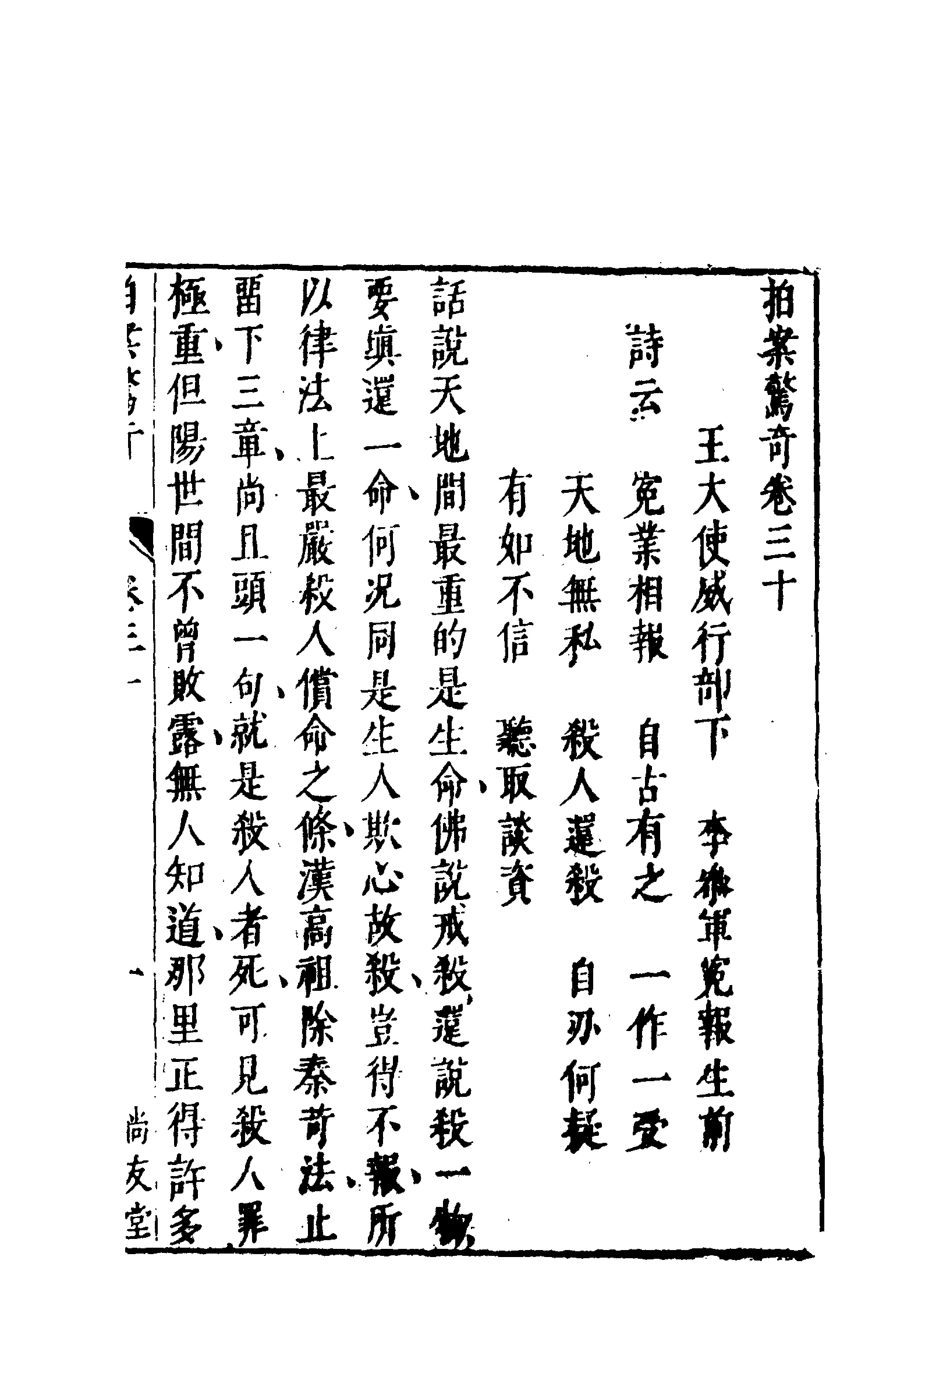 拍案驚奇卷三十
王大使威行部下　李參軍冤報生前
詩云　冤業相報　自古有之　一作一受
天地無私　殺人還殺　自刃何疑
有如不信　聽取談資
話說天地間最重的是生命、佛說戒殺、還說殺一物、
要塡還一命、何况同是生人欺心故殺、豈得不報、所
以律法上最嚴殺人償命之條、漢高祖除秦苛法、止
畱下三章、尚且頭一句、就是殺人者死、可見殺人罪
極重、但陽世間不曾敗露、無人知道、那里正得許多
拍案驚奇　卷三十　一　尚友堂